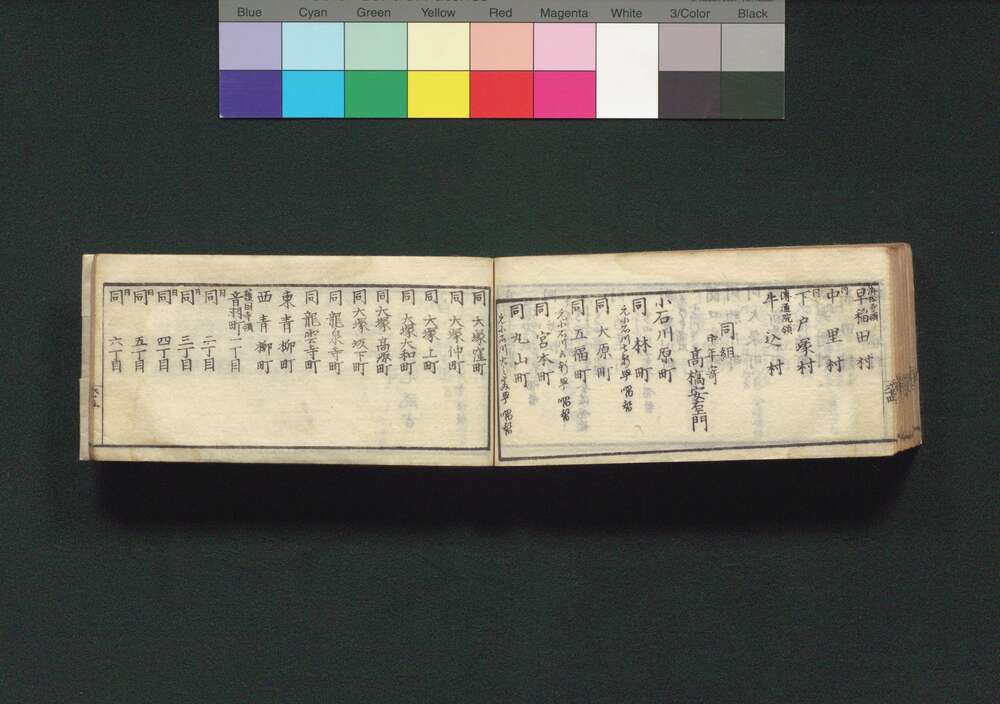 Blue Cyan Green Yellow Red Magenta White 3/Color Black
早稲田村
同
中里村
同
下戸塚村
傳通院領
牛込村
同組
中年寄
髙橋安左門
小石川原町
同 林町
同 大原町
同 五福町
同 宮本町
同 丸山町
同 大塚窪町
同 大塚仲町
同 大塚上町
同 大塚大和町
同 大塚髙源町
同 大塚坂下町
同 龍泉寺町
同 龍雲寺町
東青柳町
西青柳町
護国寺領
音羽町一丁目
同 二丁目
同 三丁目
同 四丁目
同 五丁目
同 六丁目